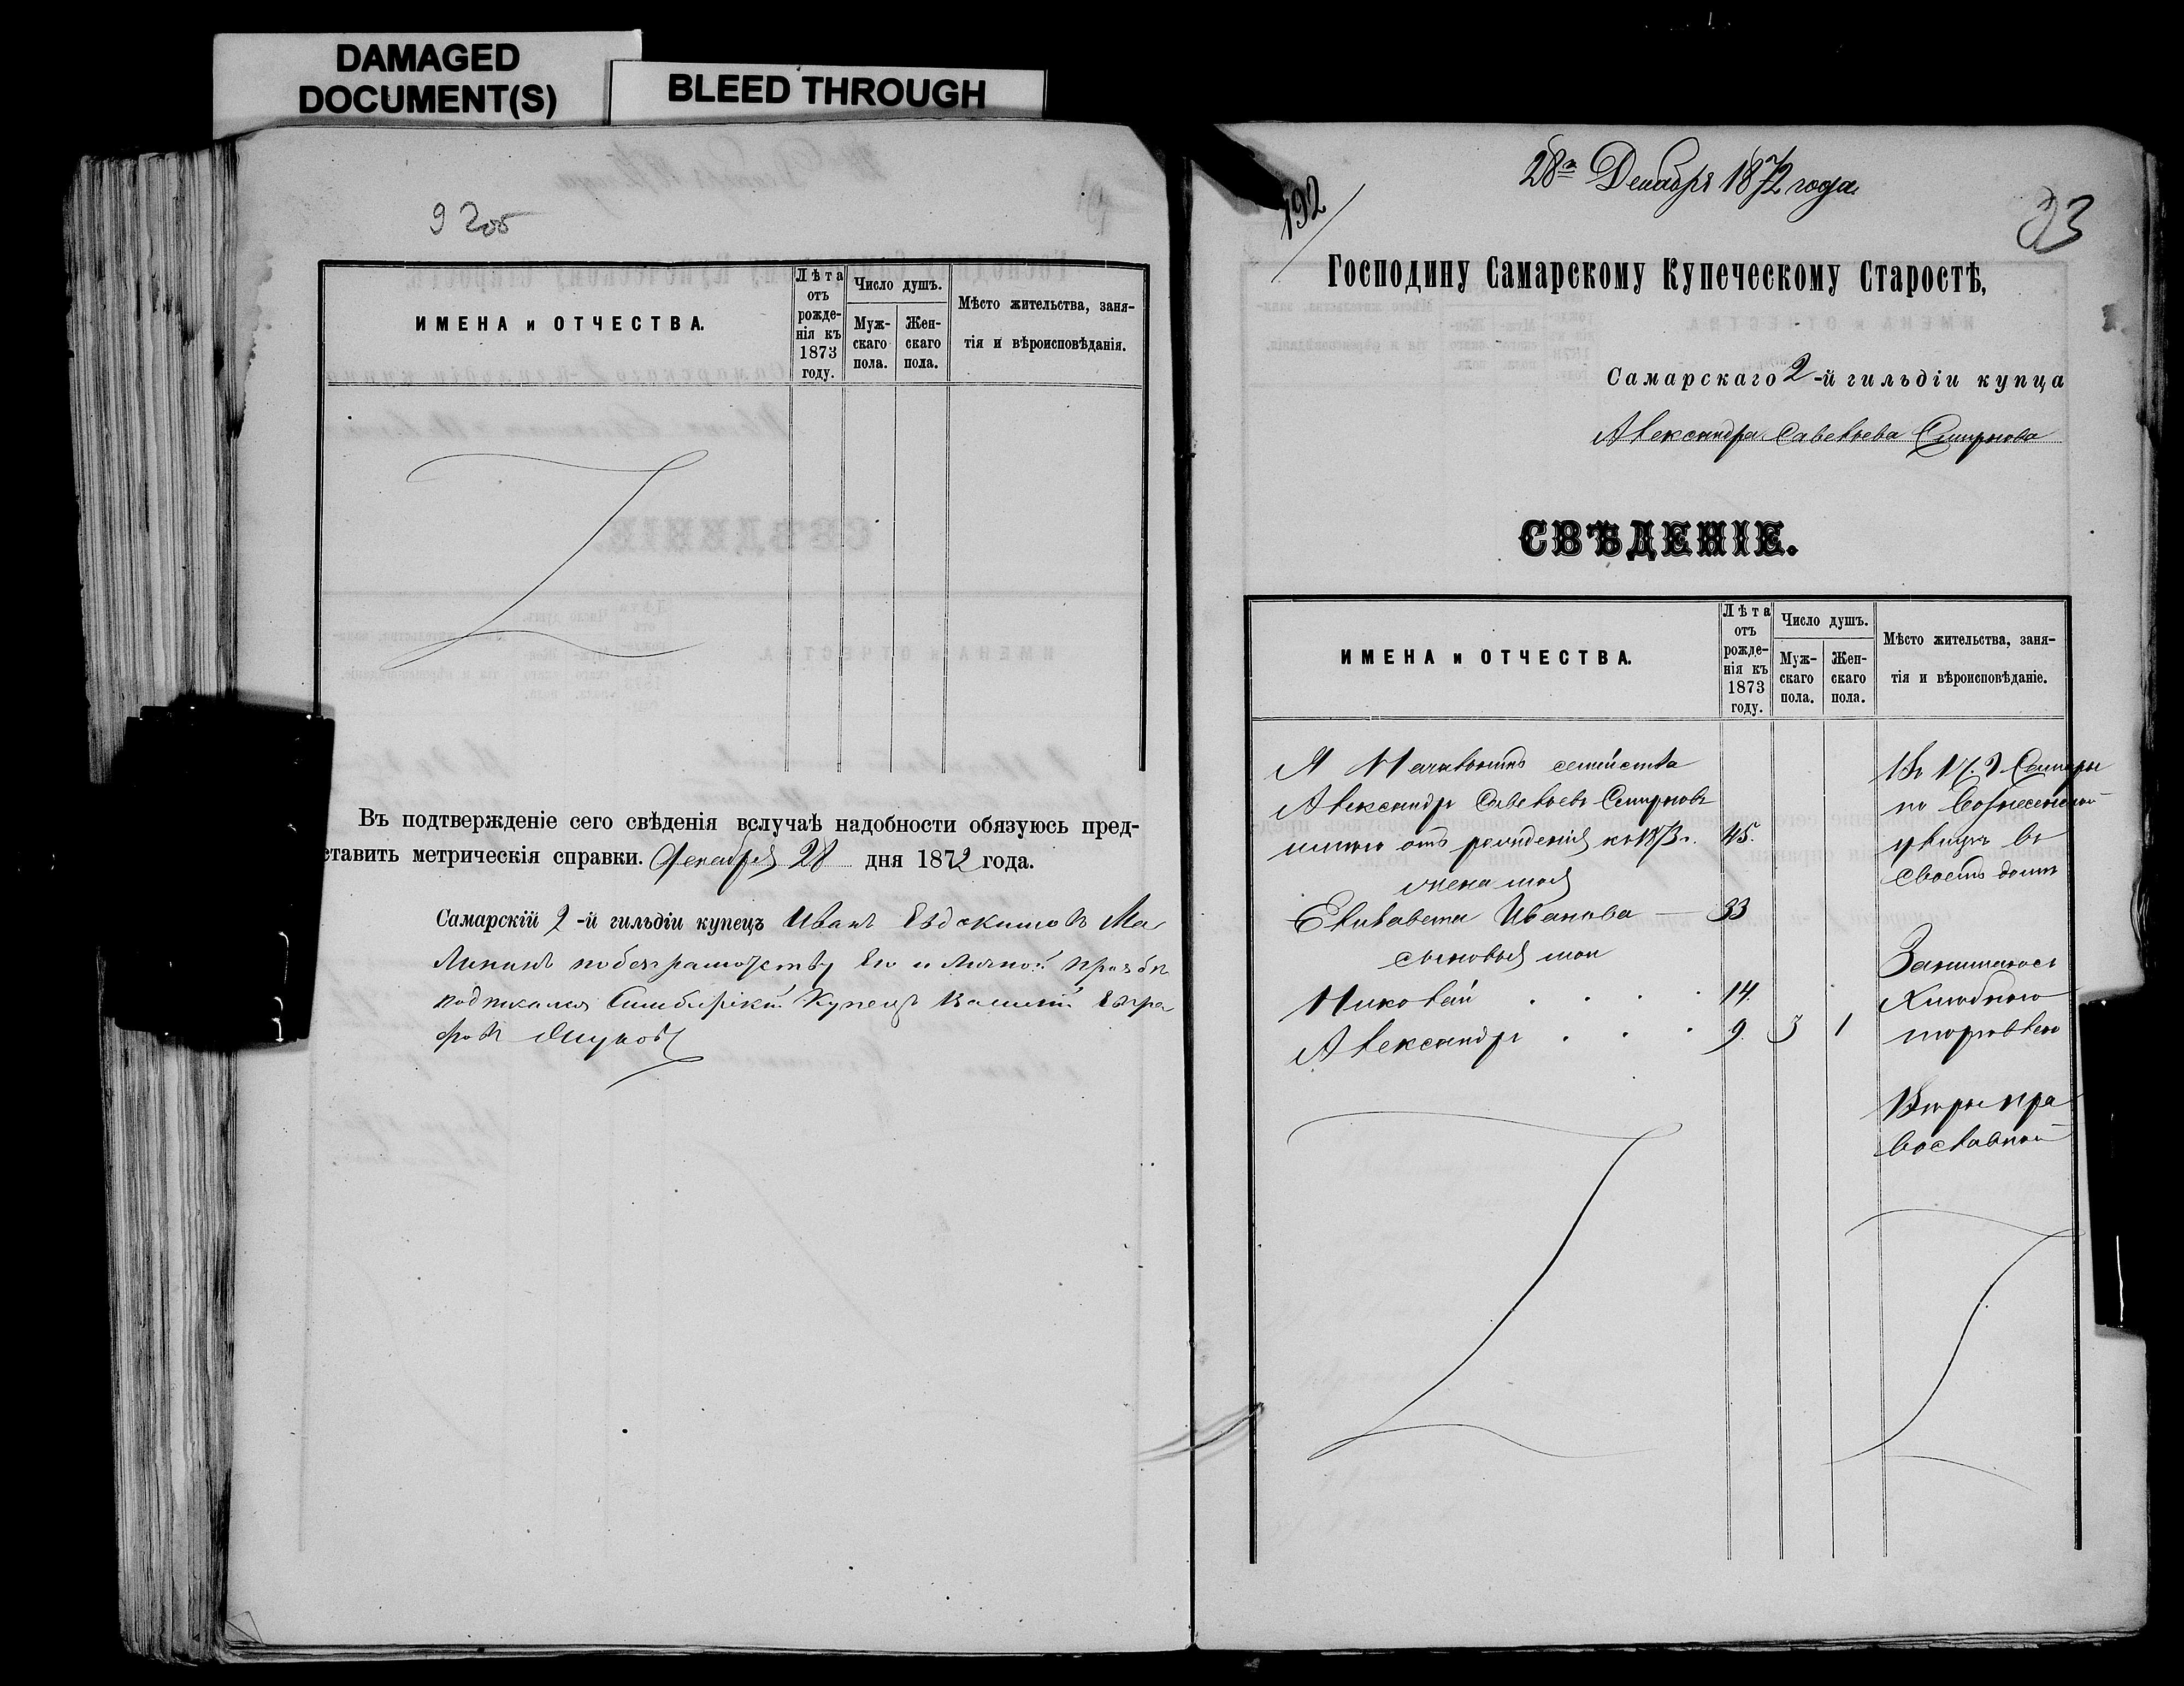 DAMAGED
DOCUMENT(S)
BLEED THROUGH
9 2об
ИМЕНА и ОТЧЕСТВА.
Лѣта
отъ
рожде-
нія къ
1873
году.
Число душъ.
Муж-
скаго
пола.
Жен-
скаго
пола.
Мѣсто жительства, заня-
тія и вѣроисповѣданія.
Въ подтвержденіе сего свѣденія вслучаѣ надобности обязуюсь пред-
ставить метрическія справки. Декабря 28 дня 1872 года.
Самарскій 2-й гильдіи купецъ Иванъ Евдокимовъ Ма
линин по безграмотству его и личной прозбѣ
подписался Симбирскй Купецъ Василий Евгра
фовъ
192
28го Декабря 1872 года.
93
Господину Самарскому Купеческому Старостѣ,
Самарскаго 2-й гильдіи купца
Александра Савельева Смирнова
СВѢДЕНІЕ.
ИМЕНА и ОТЧЕСТВА.
Лѣта
отъ
рожде-
нія къ
1873
году.
Число душъ.
Муж-
скаго
пола.
Жен-
скаго
пола.
Мѣсто жительства, заня-
тія и вѣроисповѣданіе.
Я Началникъ семѣйства
Александръ Савельевъ Смирновъ
имѣю отъ рожденія къ 1873 г. 45.
жена моя
Елизавета Иванова — 33
сыновья мои
Николай . . . . 14.
Александръ . . . 9. 3 1
Въ Г. Самары
по Вознесенской
улицѣ въ
своемъ домѣ
Занимаюсь
Хлѣбною
торговлею
Вѣры пра
вославной